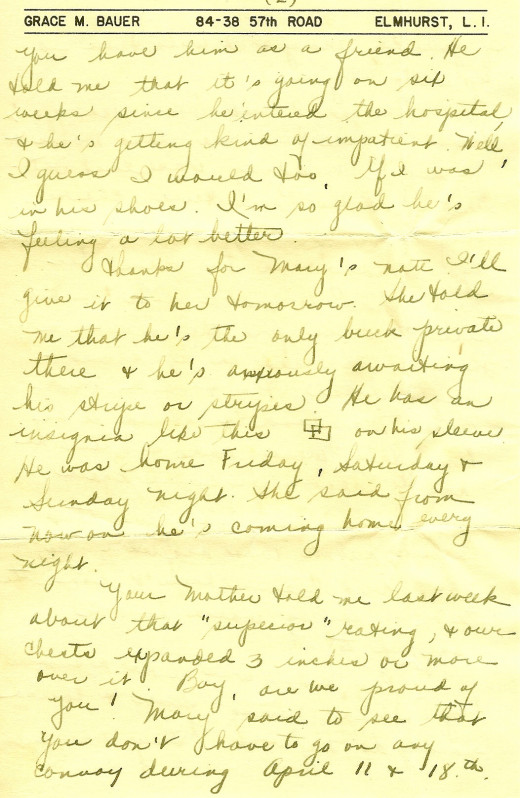 (2)
GRACE M. BAUER 84-38 57th ROAD ELMHURST, L. I.
you have him as a friend. He
told me that it's going on six
weeks since he entered the hospital,
& he's getting kind of impatient. Well,
I guess I would too, If I was
in his shoes. I'm so glad he's
feeling a lot better.
Thanks for Mary's note I'll
give it to her tomorrow. She told
me that he's the only buck private
there & he's anxiously awaiting
his stripe or stripes. He has an
insignia like this on his sleeve
He was home Friday, Saturday &
Sunday night. She said from
now on he's coming home every
night.
Your Mother told me last week
about that "superior" rating, & our
chests expanded 3 inches or more
over it. Boy, are we proud of
you! Mary said to see that
you don't have to go on any
convoy during April 11 & 18th.